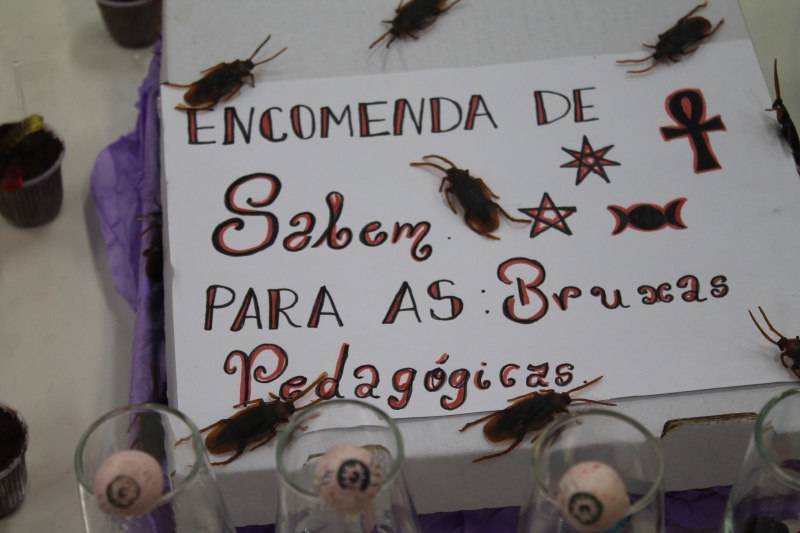 ENCOMENDA DE
Salem
PARA AS: Bruxas
Pedagógicas.